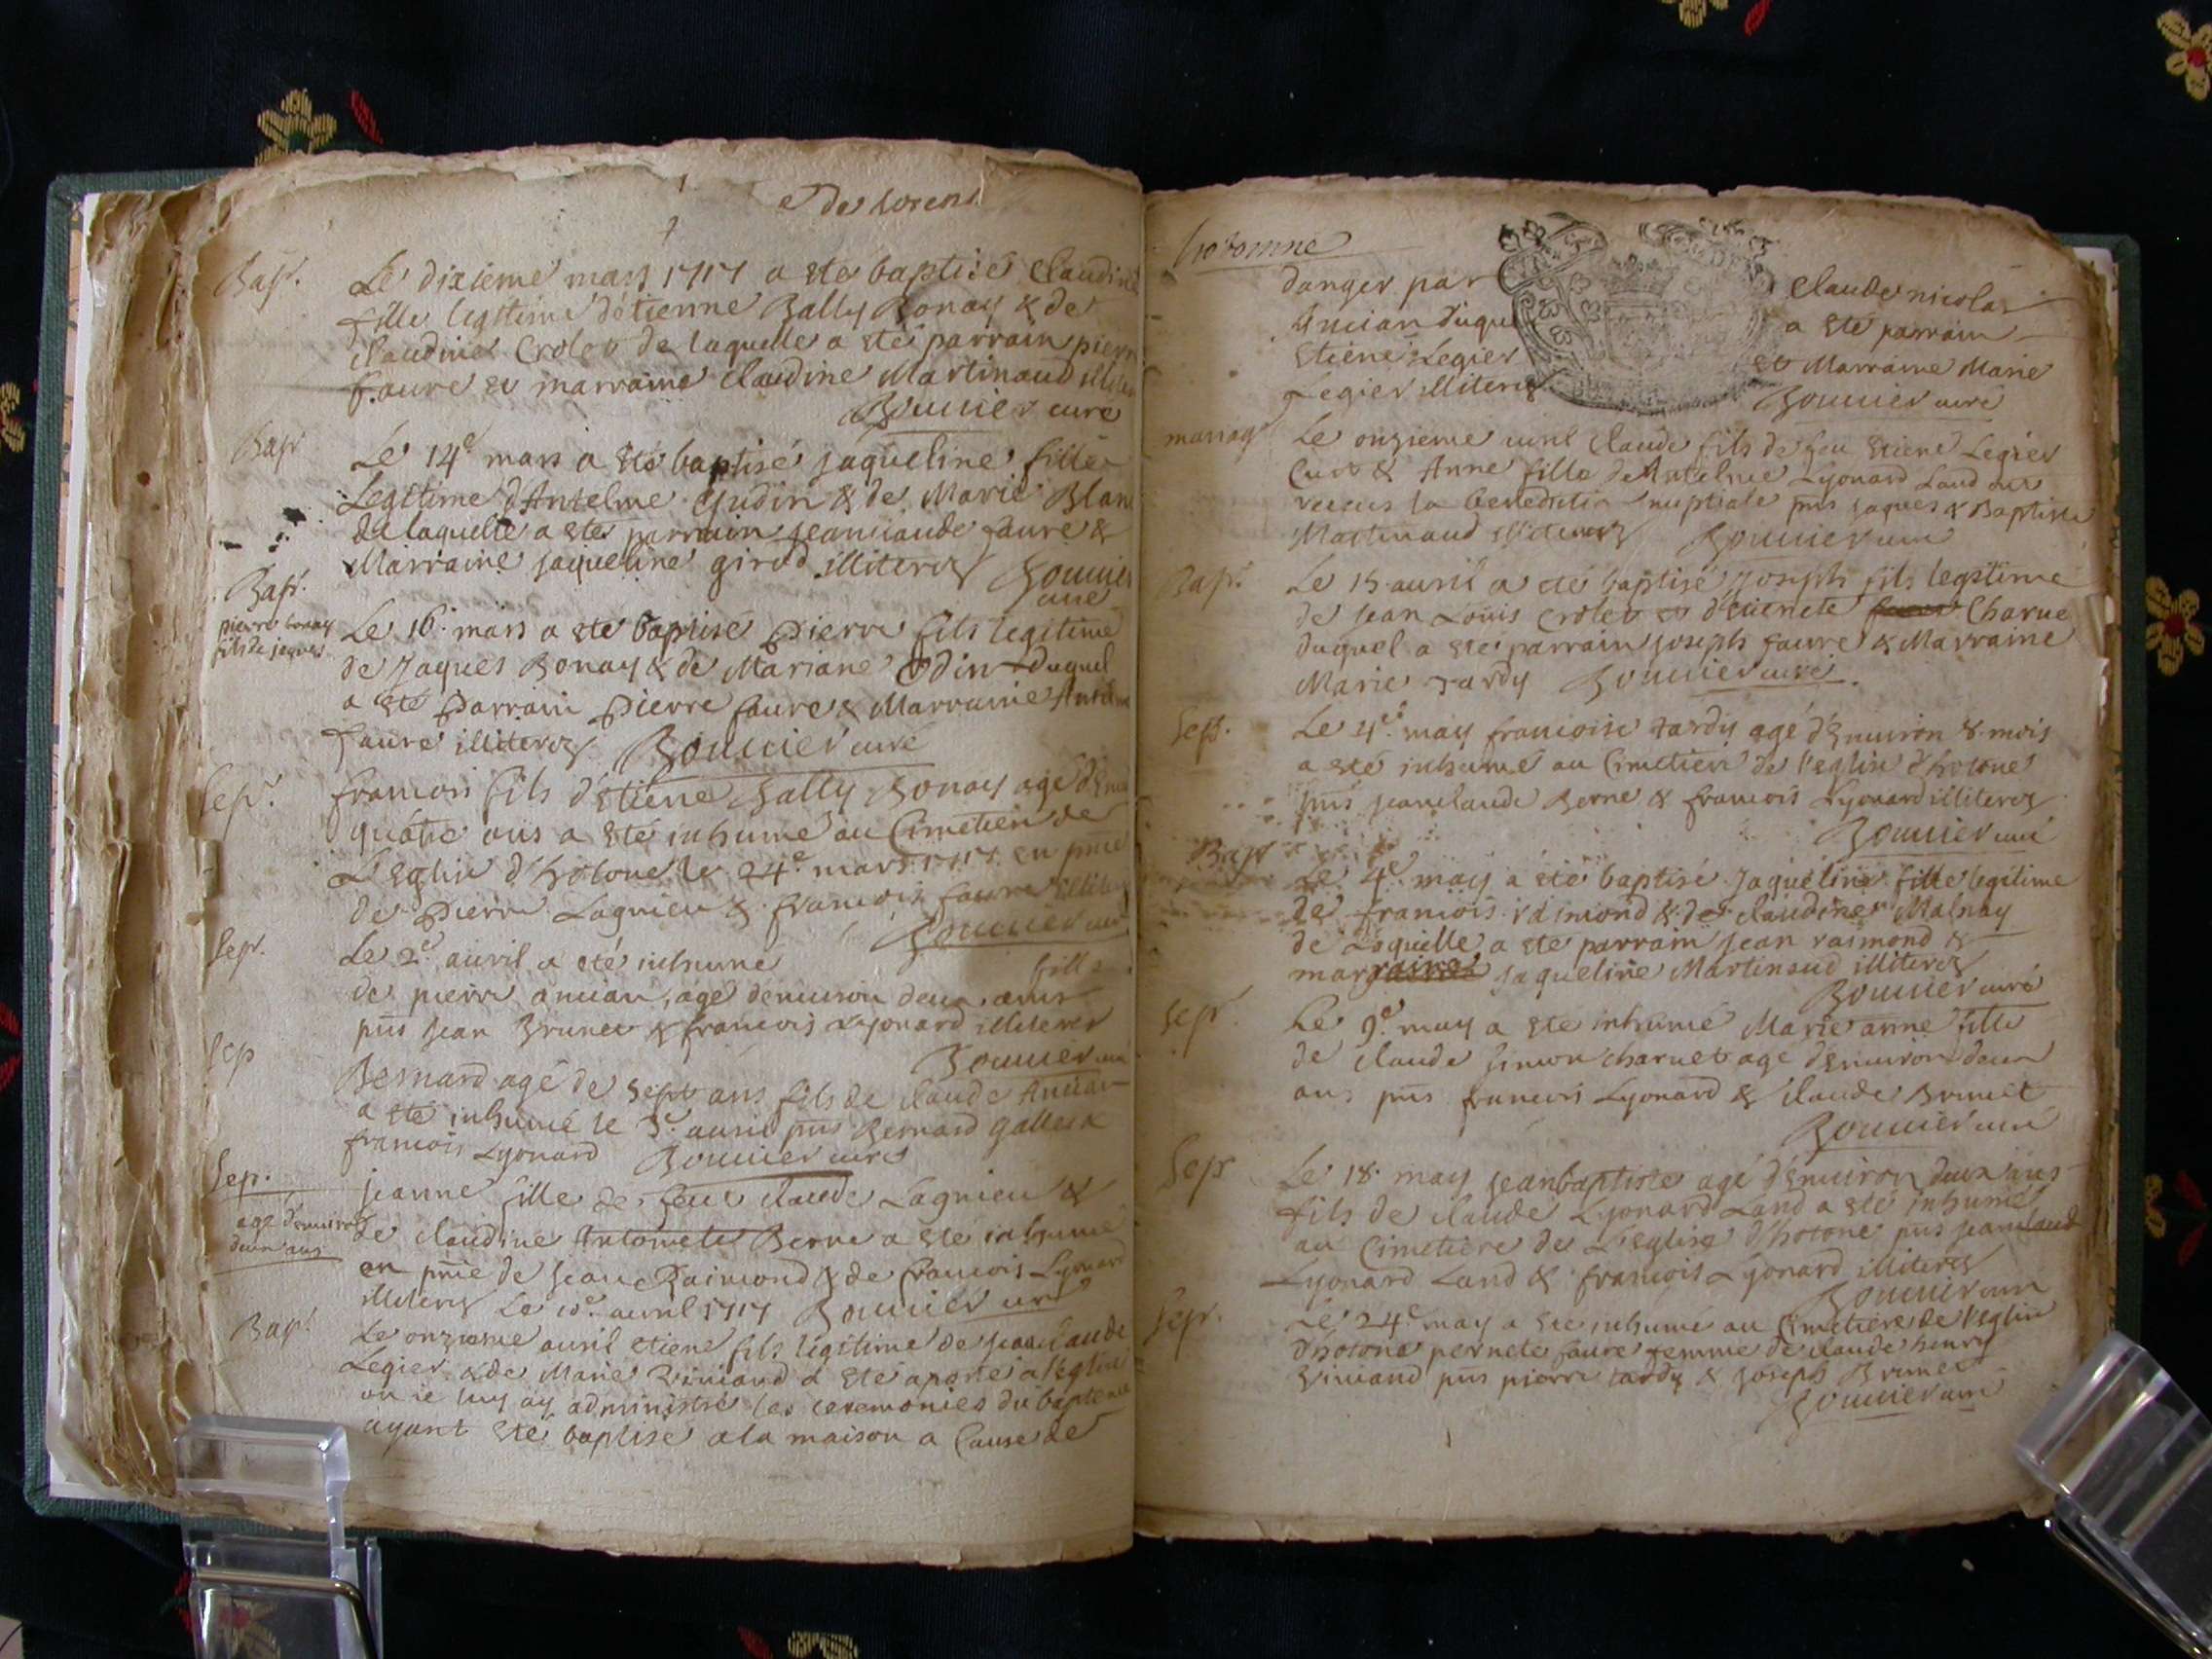 Bap.
Le dixieme mars 1717 a ete baptisé Claudine
fille legitime détienne Bally Bonay & de
Claudine Crolet de laquelle a eté parrain pierre
faure et marraine Claudine Martinaud
Bouuier curé
Bap
Le 14e mars a eté baptisé jaqueline fille
Legitime d'Antelme Gudin & de Marie Blan
de laquelle a eté parrain jeanclaude faure &
Marraine jaqueline girod illiterez Bouuier
curé
Bap.
pierre bonay
fils de jaques
Le 16. mars a ete baptisé Pierre fils legitime
de Jaques Bonay & de Mariane Odin duquel
a eté Parrain Pierre faure & Marraine
faure illiterez Bouuier curé
Sep.
francois fils d'Etiene Bally Bonay agé
quatre ans a eté inhumé au Cimetiere de
L'Eglise d'hotone le 24e mars 1717 en pnce
de Pierre Lagnieu & francois faure
Bouuier curé
Sep.
Le 2e auril a eté inhumé fille
de pierre ancian, agé denuiron deux ans
pns Jean Brunet & francois Lyonard illiterez
Bouuier curé
Sep
Bernard agé de Sept ans fils de claude Ancian
a eté inhumé le 3e auril pns Bernard Gallet &
francois Lyonard Bouuier curé
Sep.
jeanne fille de feu claude Lagnieu &
agé d'enuiron
deux ans
de claudine Antoinete Berne a ete inhumé
en pnce de jean Raimond & de francois Lyonard
illiterez Le 10e auril 1717 Bouuier curé
Bap.
Le onzieme auril etiene fils legitime de jeanclaude
Legier & de Marie Viuiand a eté aporté a l'eglise
ou ie luy ay administré les ceremonies du bapteme
ayant eté baptisé a la maison a Cause de
hotonne
danger par Claude nicolas
Ancian duquel a eté parrain
Etiene Legier et Marraine Marie
Legier illiterez Bouuier curé
mariag
Le onzieme auril Claude fils de feu Etiene Legier
& Anne fille de Antelme Lyonard Land ont
receus la benediction nuptiale pns jaques & Baptiste
Martinaud illiterez Bouuier curé
Bap.
Le 15 auril a eté baptisé Joseph fils legitime
de Jean Louis Crolet et d'etienete Charue
duquel a eté parrain joseph faure & Marraine
Marie Tardy Bouuier curé.
Sep.
Le 4e may francoise tardy agé d'Enuiron 8 mois
a eté inhumé au Cimetiere de l'eglise d'hotone
pns jeanclaude Berne & francois Lyonard illiterez
Bouuier curé
Bap
Le 4e may a eté baptisé Jaqueline fille legitime
de francois raimond & de claudine Malnay
de Laquelle a eté parrain jean raimond &
marraine jaqueline Martinaud illiterez
Bouuier curé
Sep.
Le 9e may a ete inhumé Marie anne fille
de claude simon charuet agé d'Enuiron deux
ans pns francois Lyonard & claude Brunet
Bouuier curé
Sep
Le 18. may jeanbaptiste agé d'Enuiron deux ans
fils de claude Lyonard Land a eté inhumé
au Cimetiere de L'Eglise d'hotone pns jeanclaude
Lyonard Land & francois Lyonard illiterez
Bouuier curé
Sep.
Le 24e may a ete inhumé au Cimetiere de l'eglise
d'hotone pernete faure femme de claude henry
Viuiand pns pierre tardy & joseph Brunet
Bouuier curé